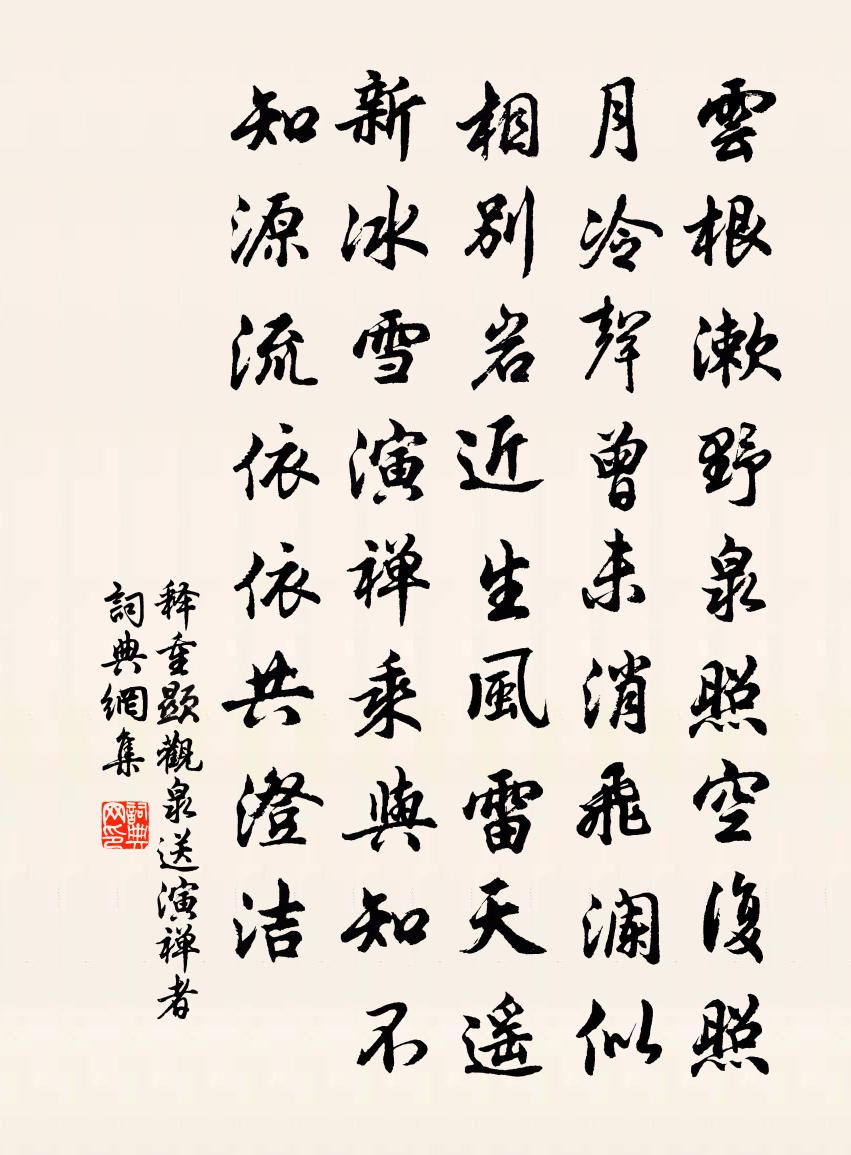 雲根漱野泉照空復照
月冷聲曾未消飛澜似
相別岩近生風雷天遥
新冰雪演禅乘與知不
知源流依依共澄洁
释重顯觀泉送演禅者
詞典網集
詞典网印